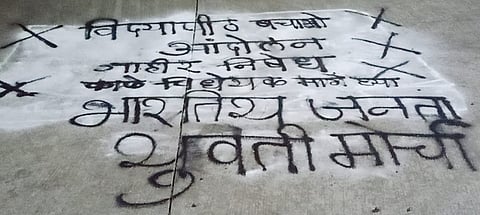 विद्यापीठ बचाओ
आंदोलन
जाहीर निषेध
काळे विधेयक मागे घ्या
भारतिय जनता
युवती मोर्चा